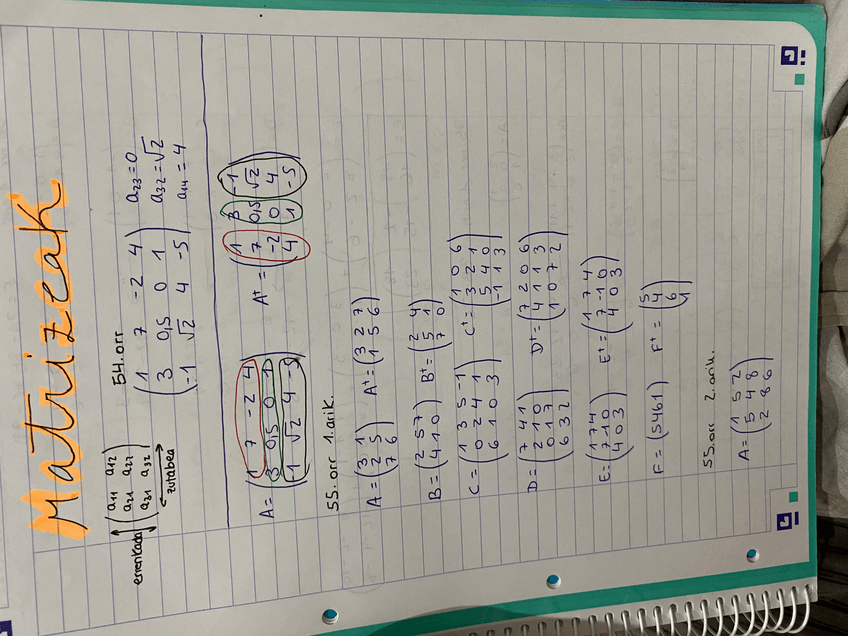 Matrizeak
54.orr
errenkada
a₁₁ a₁₂
a₂₁ a₂₂
a₃₁ a₃₂
zutabea
1 7 -2 4
3 0,5 0 1
-1 √2 4 -5
a₂₃=0
a₃₂=√2
a₁₄=4
A= (1 7 -2 4
3 0,5 0 1
-1 √2 4 -5)
Aᵗ= (1 3 -1
7 0,5 √2
-2 0 4
4 1 -5)
55.orr 1.arik.
A= (3 1
2 5
7 6)
Aᵗ= (3 2 7
1 5 6)
B= (2 5 7
4 1 0)
Bᵗ= (2 4
5 1
7 0)
C= (1 3 5 -1
0 2 4 1
6 1 0 3)
Cᵗ= (1 0 6
3 2 1
5 4 0
-1 1 3)
D= (7 4 1
2 1 0
0 1 7
6 3 2)
Dᵗ= (7 2 0 6
4 1 1 3
1 0 7 2)
E= (1 7 4
7 -1 0
4 0 3)
Eᵗ= (1 7 4
7 -1 0
4 0 3)
F= (5 4 6 1)
Fᵗ= (5
4
6
1)
55.orr 2.arik.
A= (1 5 2
5 4 8
2 8 6)